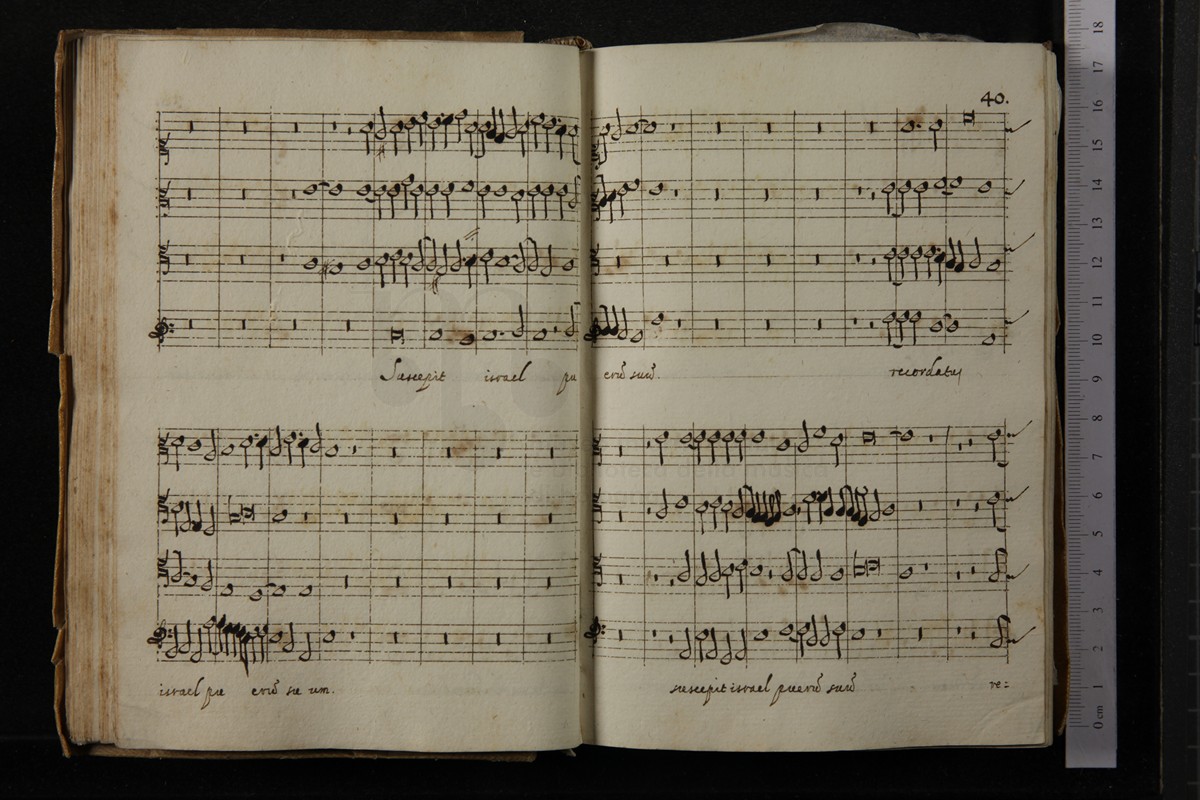 40.
Suscepit israel pu erū suū.
recordatus
israel pu erū su um.
suscepit israel puerū suū
re:
18
17
16
15
14
13
12
11
10
9
8
7
6
5
4
3
2
1
0 cm